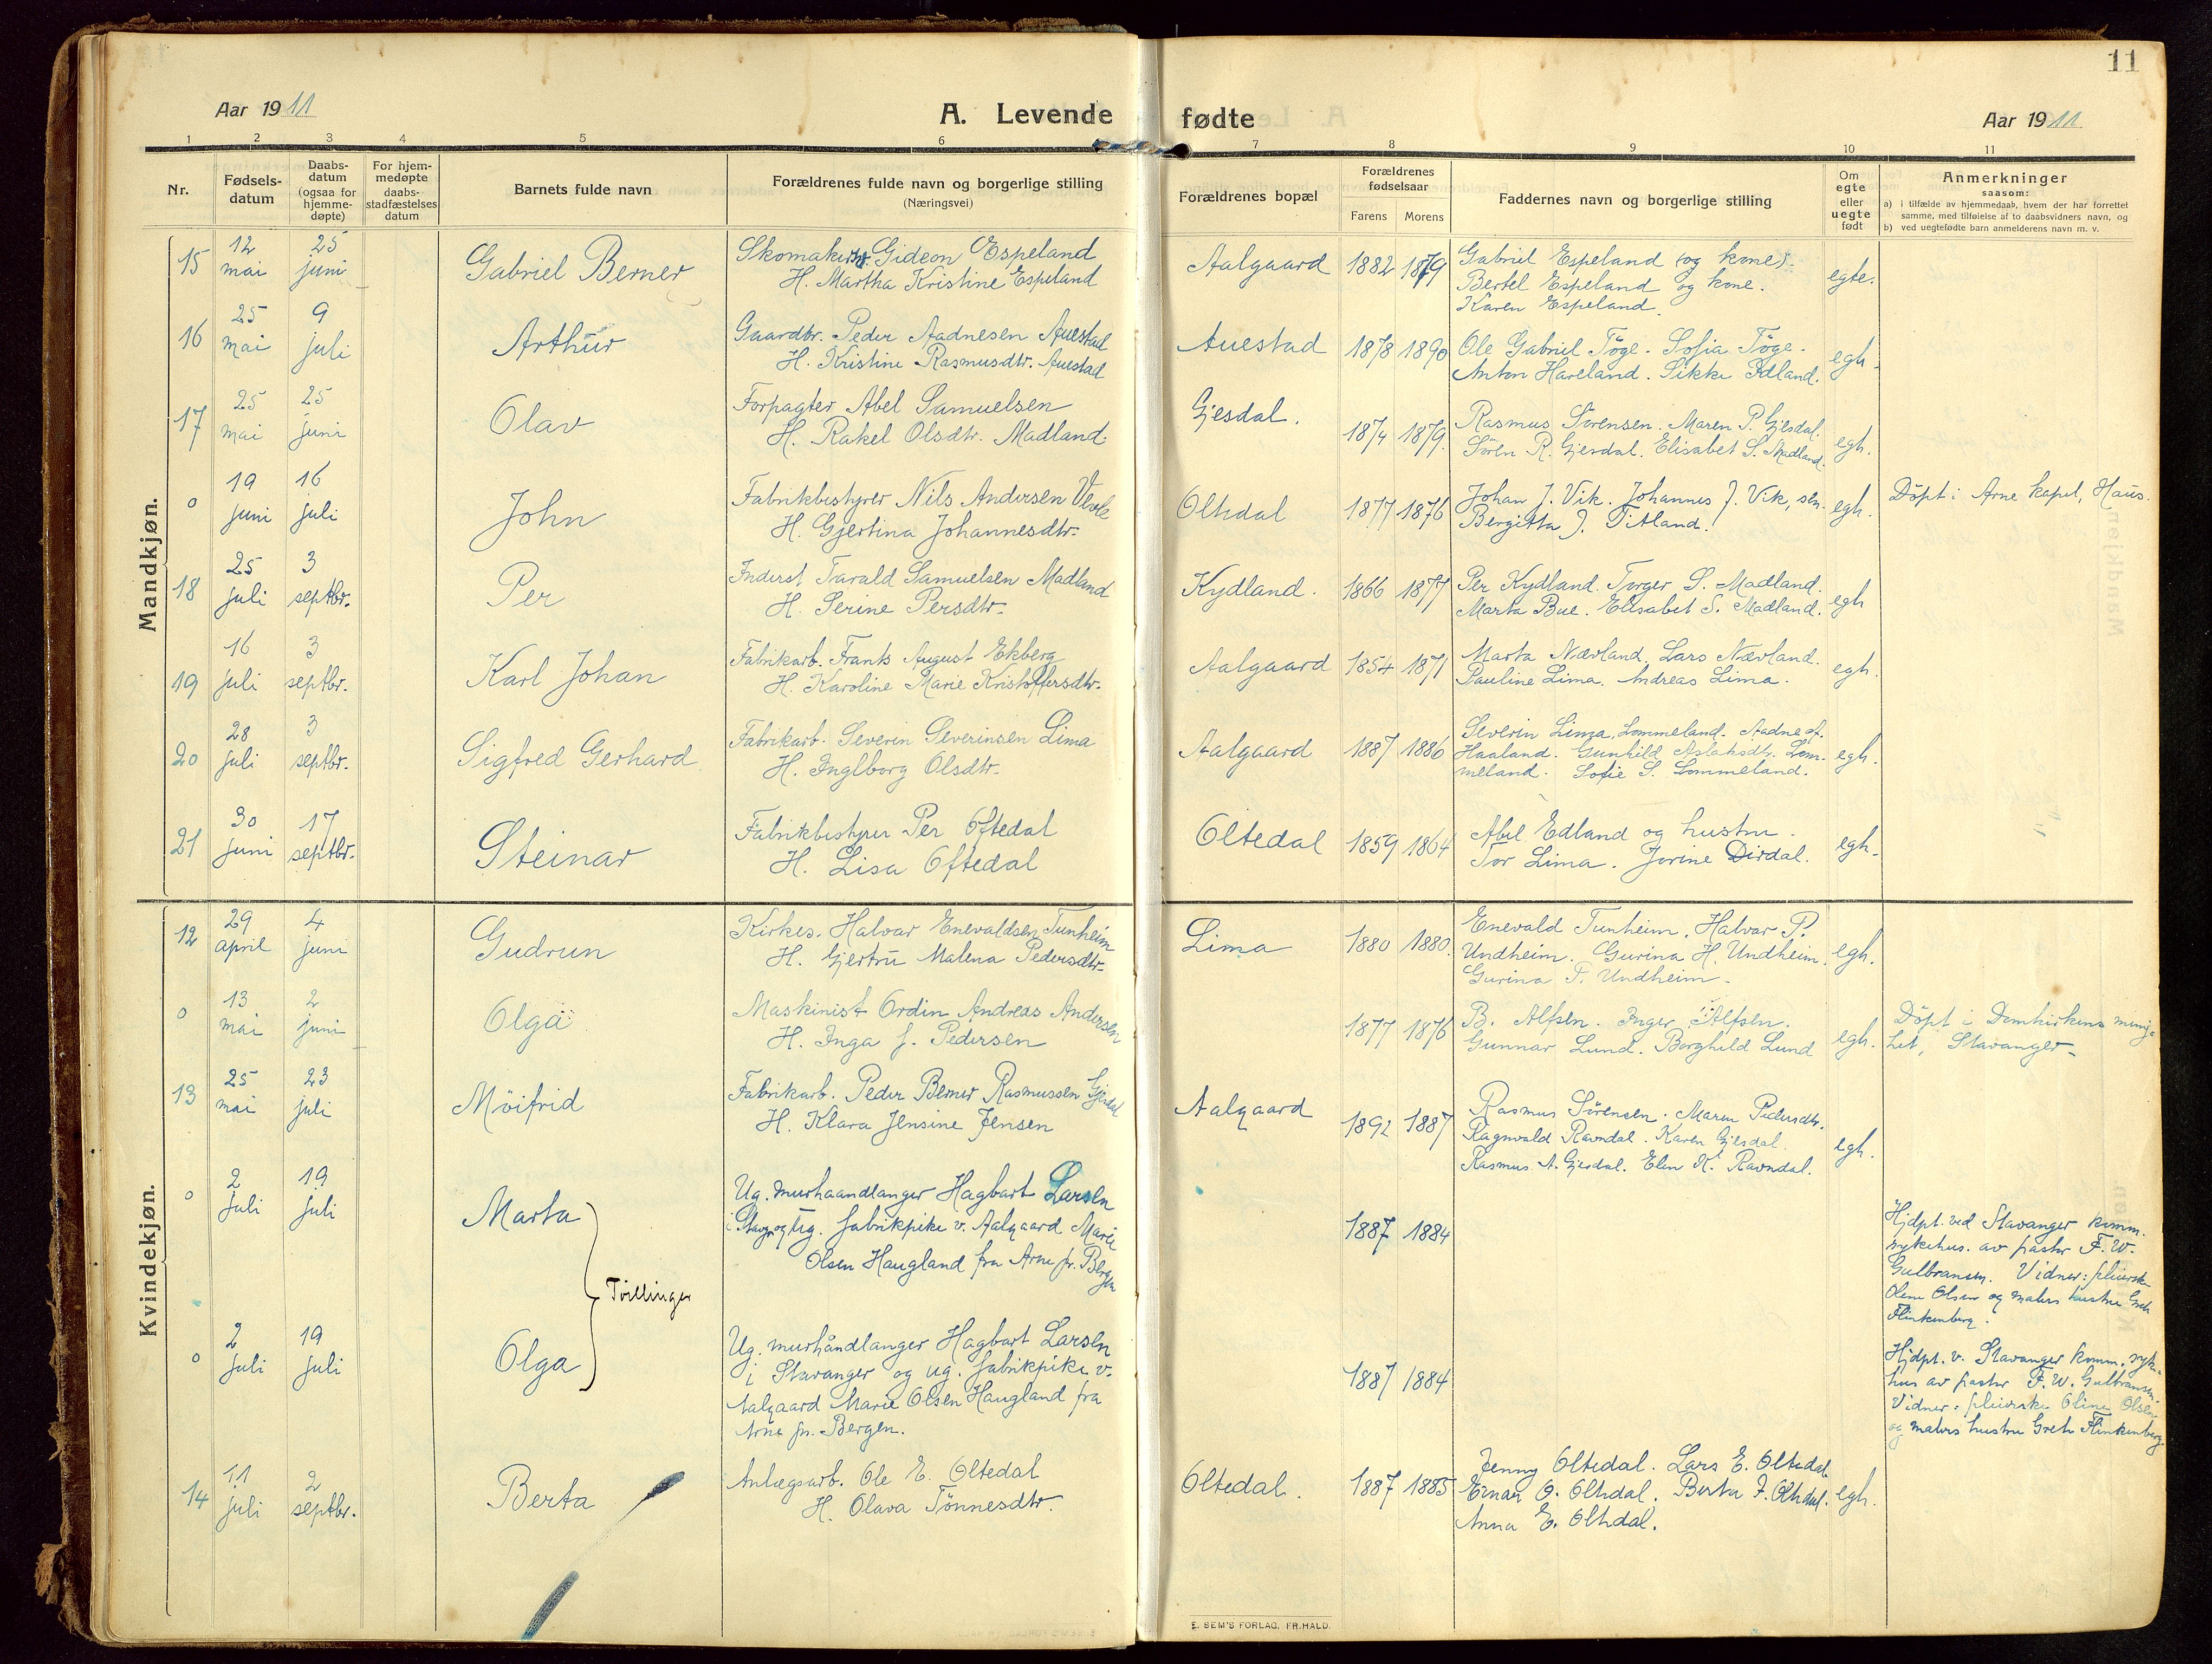 11
Aar 1911
A. Levende
fødte
Aar 1911
1 2 3 4 5 6 7 8 9 10 11
Nr.
Fødsels-
datum
Daabs-
datum
(ogsaa for
hjemme-
døpte)
For hjem-
medøpte
daabs-
stadfæstelses
datum
Barnets fulde navn
Forældrenes fulde navn og borgerlige stilling
(Næringsvei)
Forældrenes bopæl
Forældrenes
fødselsaar
Farens Morens
Faddernes navn og borgerlige stilling
Om
egte
eller
uegte
født
Anmerkninger
saasom:
a) i tilfælde av hjemmedaab, hvem der har forrettet
samme, med tilføielse af to daabsvidners navn, og
b) ved uegtefødte barn anmelderens navn m. v.
Mandkjøn.
15
12
mai
25
juni
Gabriel Berner
Gideon Espeland
H. Martha Kristine Espeland
Aalgaard
1882 1879
Gabriel Espeland (og kone).
Bertel Espeland og kone.
Karen Espeland.
egte.
16
25
mai
9
juli
Arthur
Gaardbr. Peder Aadnesen Auestad
H. Kristine Rasmusdtr. Auestad
Auestad
1878 1890
Ole Gabriel Töge. Sofia Töge.
Anton Hareland. Sikke Edland.
egh.
17
25
mai
25
juni
Olav
Forpagter Abel Samuelsen
H. Rakel Olsdtr. Madland.
Gjesdal.
1874 1879.
Rasmus Sörensen. Maren P. Gjesdal.
Sören R. Gjesdal. Elisabet S. Madland.
egh.
o
19
juni
16
juli
John
Fabrikbestyrer Nils Andersen
H. Gjertina Johannesdtr.
Oltedal
1877 1876
Johan J. Vik. Johannes J. Vik, sen.
Bergitta J. Titland.
egh.
Döpt i Arne kapel, Haus.
18
25
juli
3
septbr.
Per
Inderst Tarald Samuelsen Madland
H. Serine Persdtr.
Kydland.
1866 1877
Per Kydland. Torger S. Madland.
Marta Bue. Elisabet S. Madland.
egh
19
16
juli
3
septbr.
Karl Johan
Fabrikarb. Frants August Ekberg
H. Karoline Marie Kristoffersdtr.
Aalgaard
1854 1871
Marta Nævland. Lars Nævland.
Pauline Lima. Andreas Lima.
egh.
20
28
juli
3
septbr.
Sigfred Gerhard
Fabrikarb. Severin Severinsen Lima
H. Inglborg Olsdtr.
Aalgaard
1887 1886
Severin Lima, Lommeland. Aadne
Haaland. Gunhild Aslaksdtr. Lom-
meland. Sofie S. Lommeland.
egh.
21
30
juni
17
septbr.
Steinar
Fabrikbestyrer Per Oftedal
H. Lisa Oftedal
Oltedal
1859 1864
Abel Edland og hustru.
Tor Lima. Jorine Dirdal.
egh.
Kvindekjøn.
12
29
april
4
juni
Gudrun
Kirkes. Halvar Enevaldsen Tunheim
H. Gjertru Malena Pedersdtr.
Lima
1880 1880.
Enevald Tunheim. Halvar P.
Undheim. Gurina H. Undheim.
Gurina P. Undheim.
egh.
o
13
mai
2
juni
Olga
Maskinist Ordin Andreas Andersen
H. Inga J. Pedersen
1877 1876
B. Alfsen. Inger Alfsen.
Gunnar Lund. Borghild Lund
egh.
Döpt i Domkirkens menig-
het, Stavanger.
13
25
mai
23
juli
Möifrid
Fabrikarb. Peder Berner Rasmussen Gjesdal
H. Klara Jensine Jensen
Aalgaard
1892 1887
Rasmus Sörensen. Maren Pedersdtr.
Ragnvald Ravndal. Karen Gjesdal
Rasmus A. Gjesdal. Elen K. Ravndal.
egh.
o
2
juli
19
juli
Marta
Ug. murhaandlanger Hagbart Larsen
i Stavg. og ug. fabrikpike v. Aalgaard Marie
Olsen Haugland fra Arne pr. Bergen
1887 1884
Hjdpt. ved Stavanger komm.
sykehus. av pastor F. W.
Gulbransen. Vidner: pleierske
Oline Olsen og malers hustru Greth
Flinkenberg.
Tvillinger
o
2
juli
19
juli
Olga
Ug. murhåndlanger Hagbart Larsen
i Stavanger og ug. fabrikpike v.
Aalgaard Marie Olsen Haugland fra
Arne pr. Bergen.
1887 1884
Hjdpt. v. Stavanger komm. syke-
hus av pastor F. W. Gulbransen.
Vidner: pleierske Oline Olsen
og malers hustru Greth Flinkenberg.
14
11
juli
2
septbr.
Berta
Anlægsarb. Ole E. Oltedal
H. Olava Tönnesdtr.
Oltedal.
1887 1885
Jenny Oltedal. Lars E. Oltedal
Einar O. Oltedal. Berta J. Oltedal.
Anna E. Oltedal.
egh.
E. SEM'S FORLAG, FR.HALD.